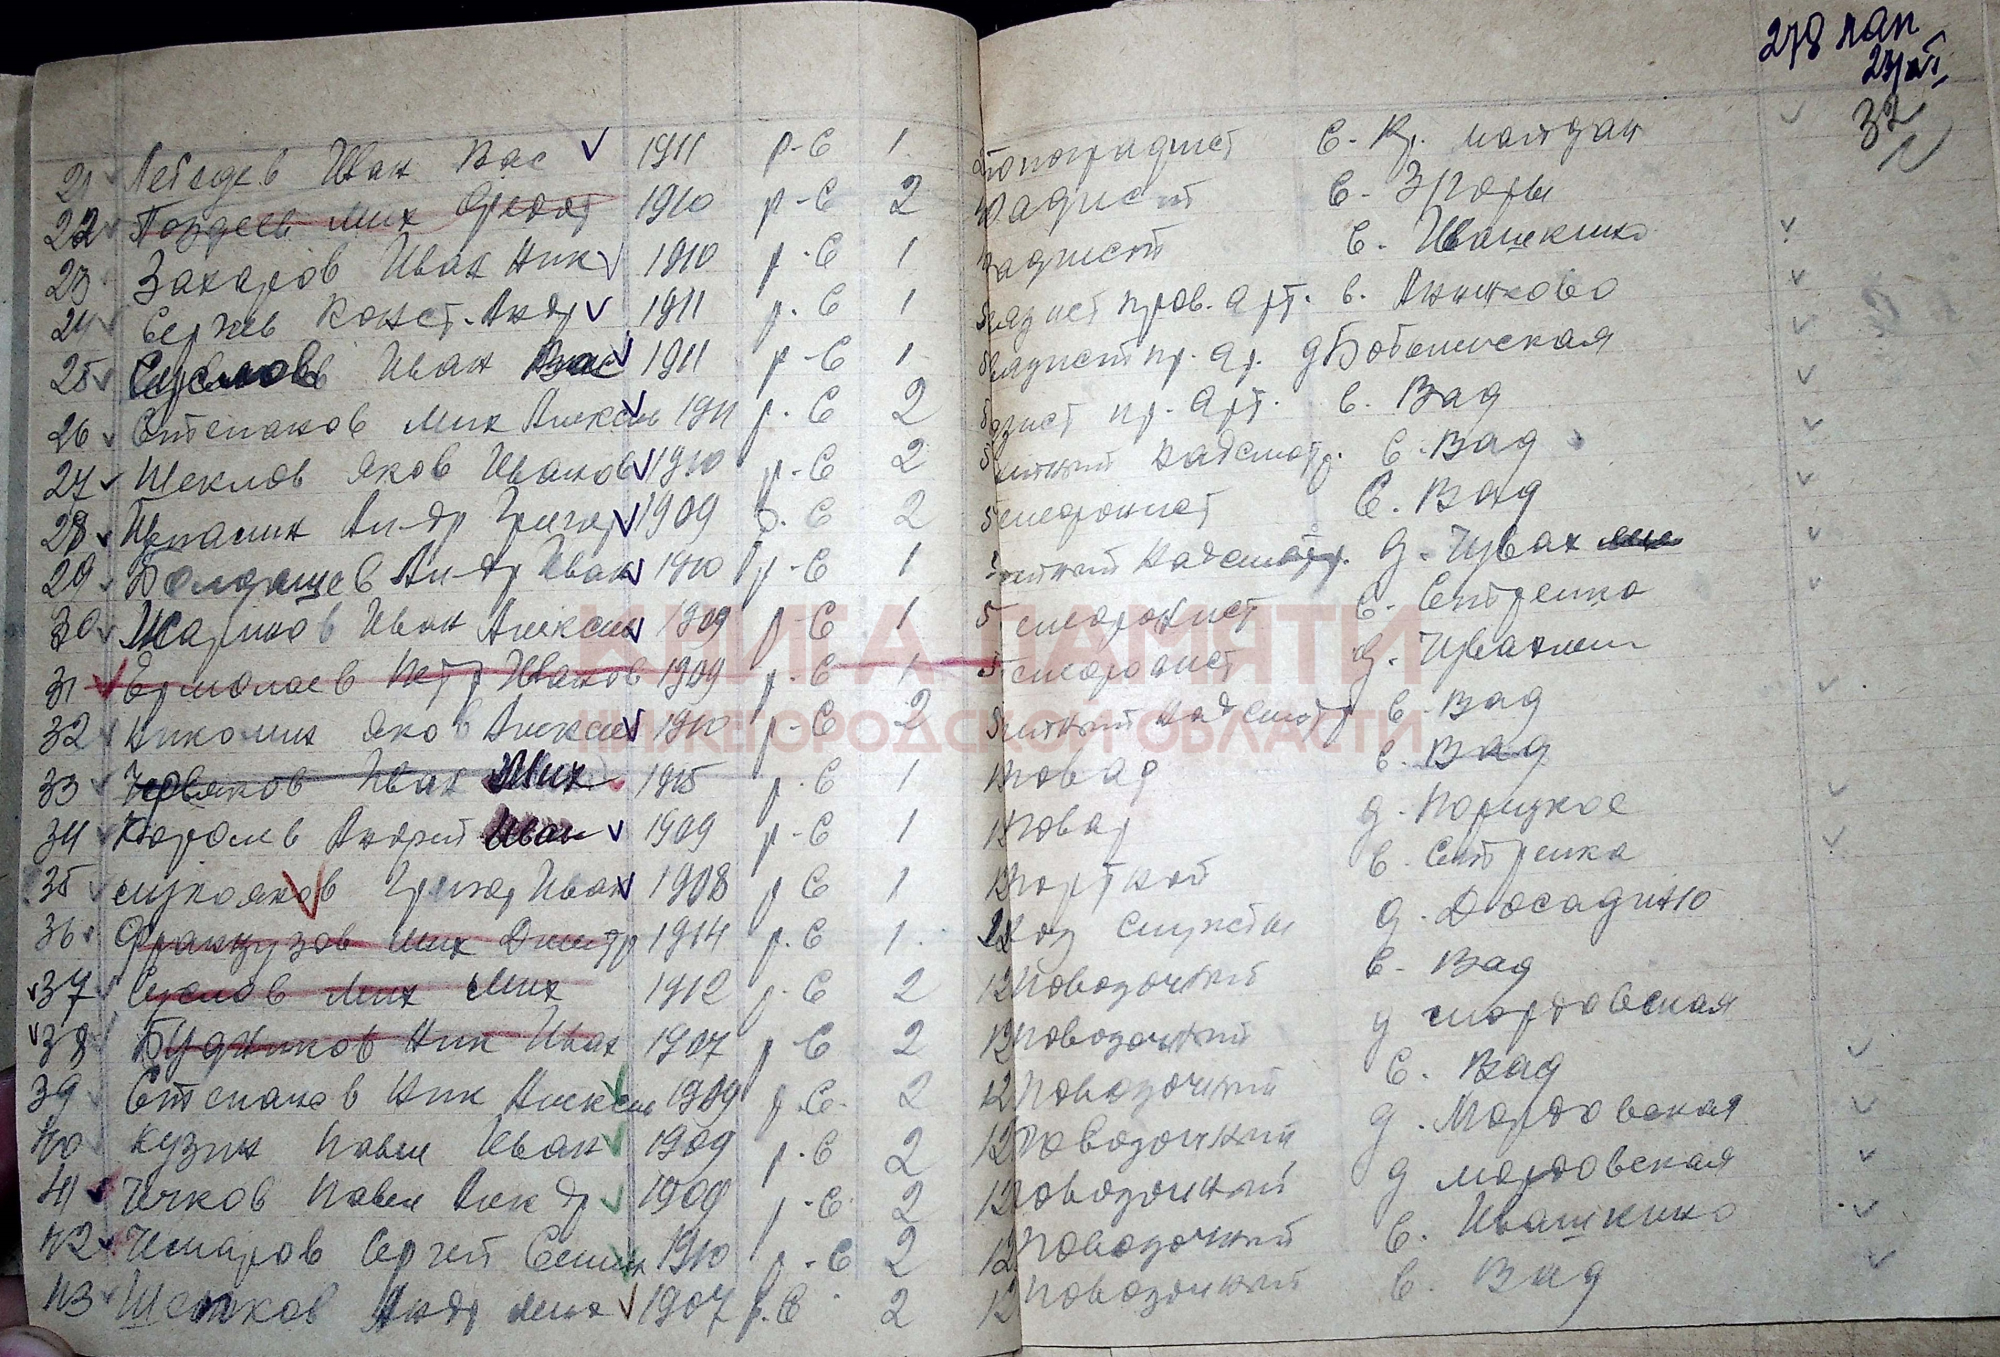 278 пап
32
21 Лебедев Иван Вас 1911 р-С 1 топоградист С. Кр. майдан
22 Поздеев Мих Федот 1910 р-С 2 радист С. Згоры
23 Захаров Иван Ник 1910 р-С 1 радист С. Ивашкино
24 Сергеев Конст. Андр 1911 р. С 1 радист пров. арт. с. Анненково
25 Суслов Иван Вас 1911 р-С 1 радист пр. ар. д Бобылиская
26 Степанов Мих Алексее 1911 р. С 2 пр. арт. с. Вад
27 Щеклов Яков Иванов 1910 р-С 2 5 надсмотр. С. Вад
28 Андр Григор 1909 р. С 2 5 телефонист С. Вад
29 Болдашев Андр Иван 1910 р-С 1 надсмотр. д. Чуварлей
30 Жариков Иван Алексеев 1909 р-С 1 5 телефонист С. Стрелка
31 Ермолаев Петр Иванов 1909 р-С 1 5 телефонист д. Чуварлеи
32 Николин Яков Алексее 1910 р-С 2 5 надсмотр С. Вад
33 Червяков Иван Мих 1915 р. С 1 12 повар С. Вад
34 Королев Андрей Иван 1909 р-С 1 12 повар д. Порецкое
35 Григор Иван 1908 р С 1 12 портной С. Стрелка
36 Французов Мих Дмитр 1914 р. С 1 12 хоз службы д. Досадино
37 Суслов Мих Мих 1912 р. С 2 12 повозочный С. Вад
38 Будников Ник Иван 1907 р-С 2 12 повозочный д мордовская
39 Степанов Ник Алексее 1909 р. С. 2 12 повозочный С. Вад
40 Кузин Павел Иван 1909 р. С 2 12 повозочный д. Мордовская
41 Чечков Павел Алек Др 1909 р-С 2 12 повозочный д мордовская
42 Чемаров Сергей Семен 1910 р. С 2 12 повозочный С. Ивашкино
43 Андр Мих 1907 р. С 2 12 повозочный С. Вад
КНИГА ПАМЯТИ
НИЖЕГОРОДСКОЙ ОБЛАСТИ